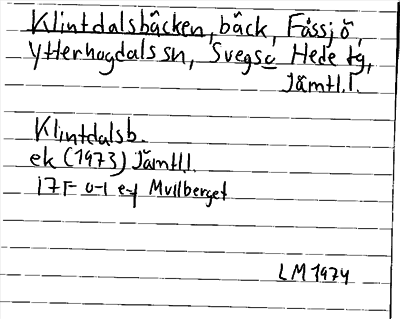 Klintdalsbäcken, bäck, Fåssjö,
Ytterhogdals sn, Svegs o Hede tg,
Jämtl.l.
Klintdalsb.
ek (1973) Jämtl.l.
17F 0-1 e-f Mullberget
LM 1974